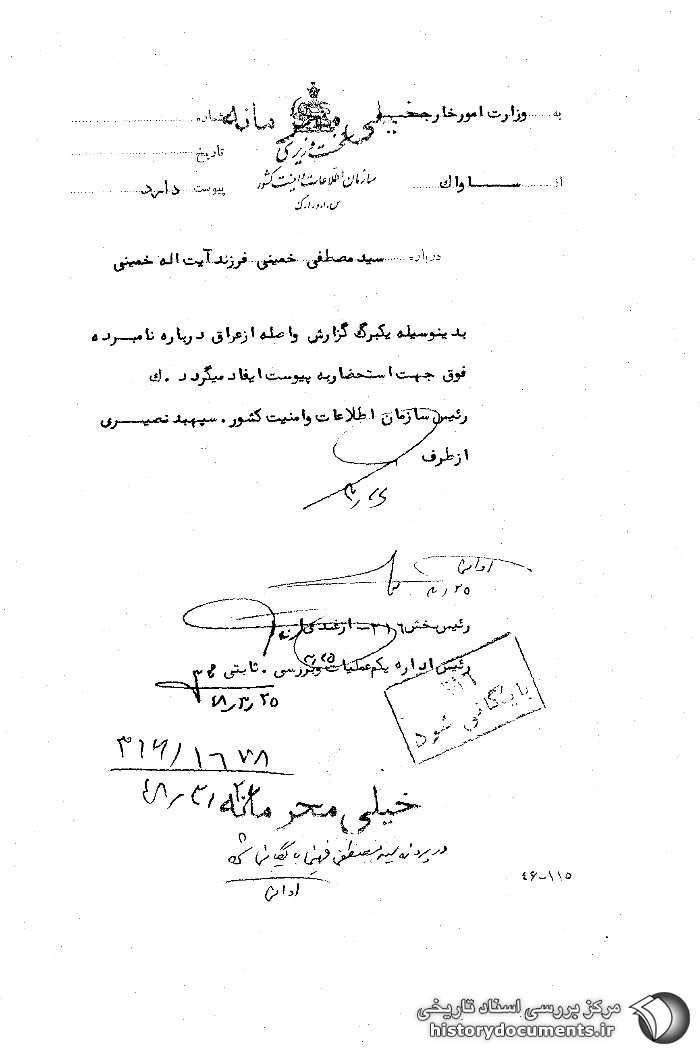 به وزارت امور خارجه خیلی محرمانه شماره
نخست وزیری
تاریخ
از ساواک سازمان اطلاعات و امنیت کشور پیوست دارد
س.ا.و.ا.ک
درباره سید مصطفی خمینی فرزند آیت اله خمینی
بدینوسیله یکبرگ گزارش واصله از عراق درباره نامبرده
فوق جهت استحضار به پیوست ایفاد میگردد . ک
رئیس سازمان اطلاعات و امنیت کشور . سپهبد نصیری
از طرف
رئیس بخش ۳۱۶ - ازغندی
رئیس اداره یکم عملیات و بررسی . ثابتی
۴۸/۳/۲۵
۳۱۶
بایگانی شود
۳۱۶/۱۶۷۸
خیلی محرمانه
در پرونده سید مصطفی
۴۶-۱۱۵
مرکز بررسی اسناد تاریخی
historydocuments.ir